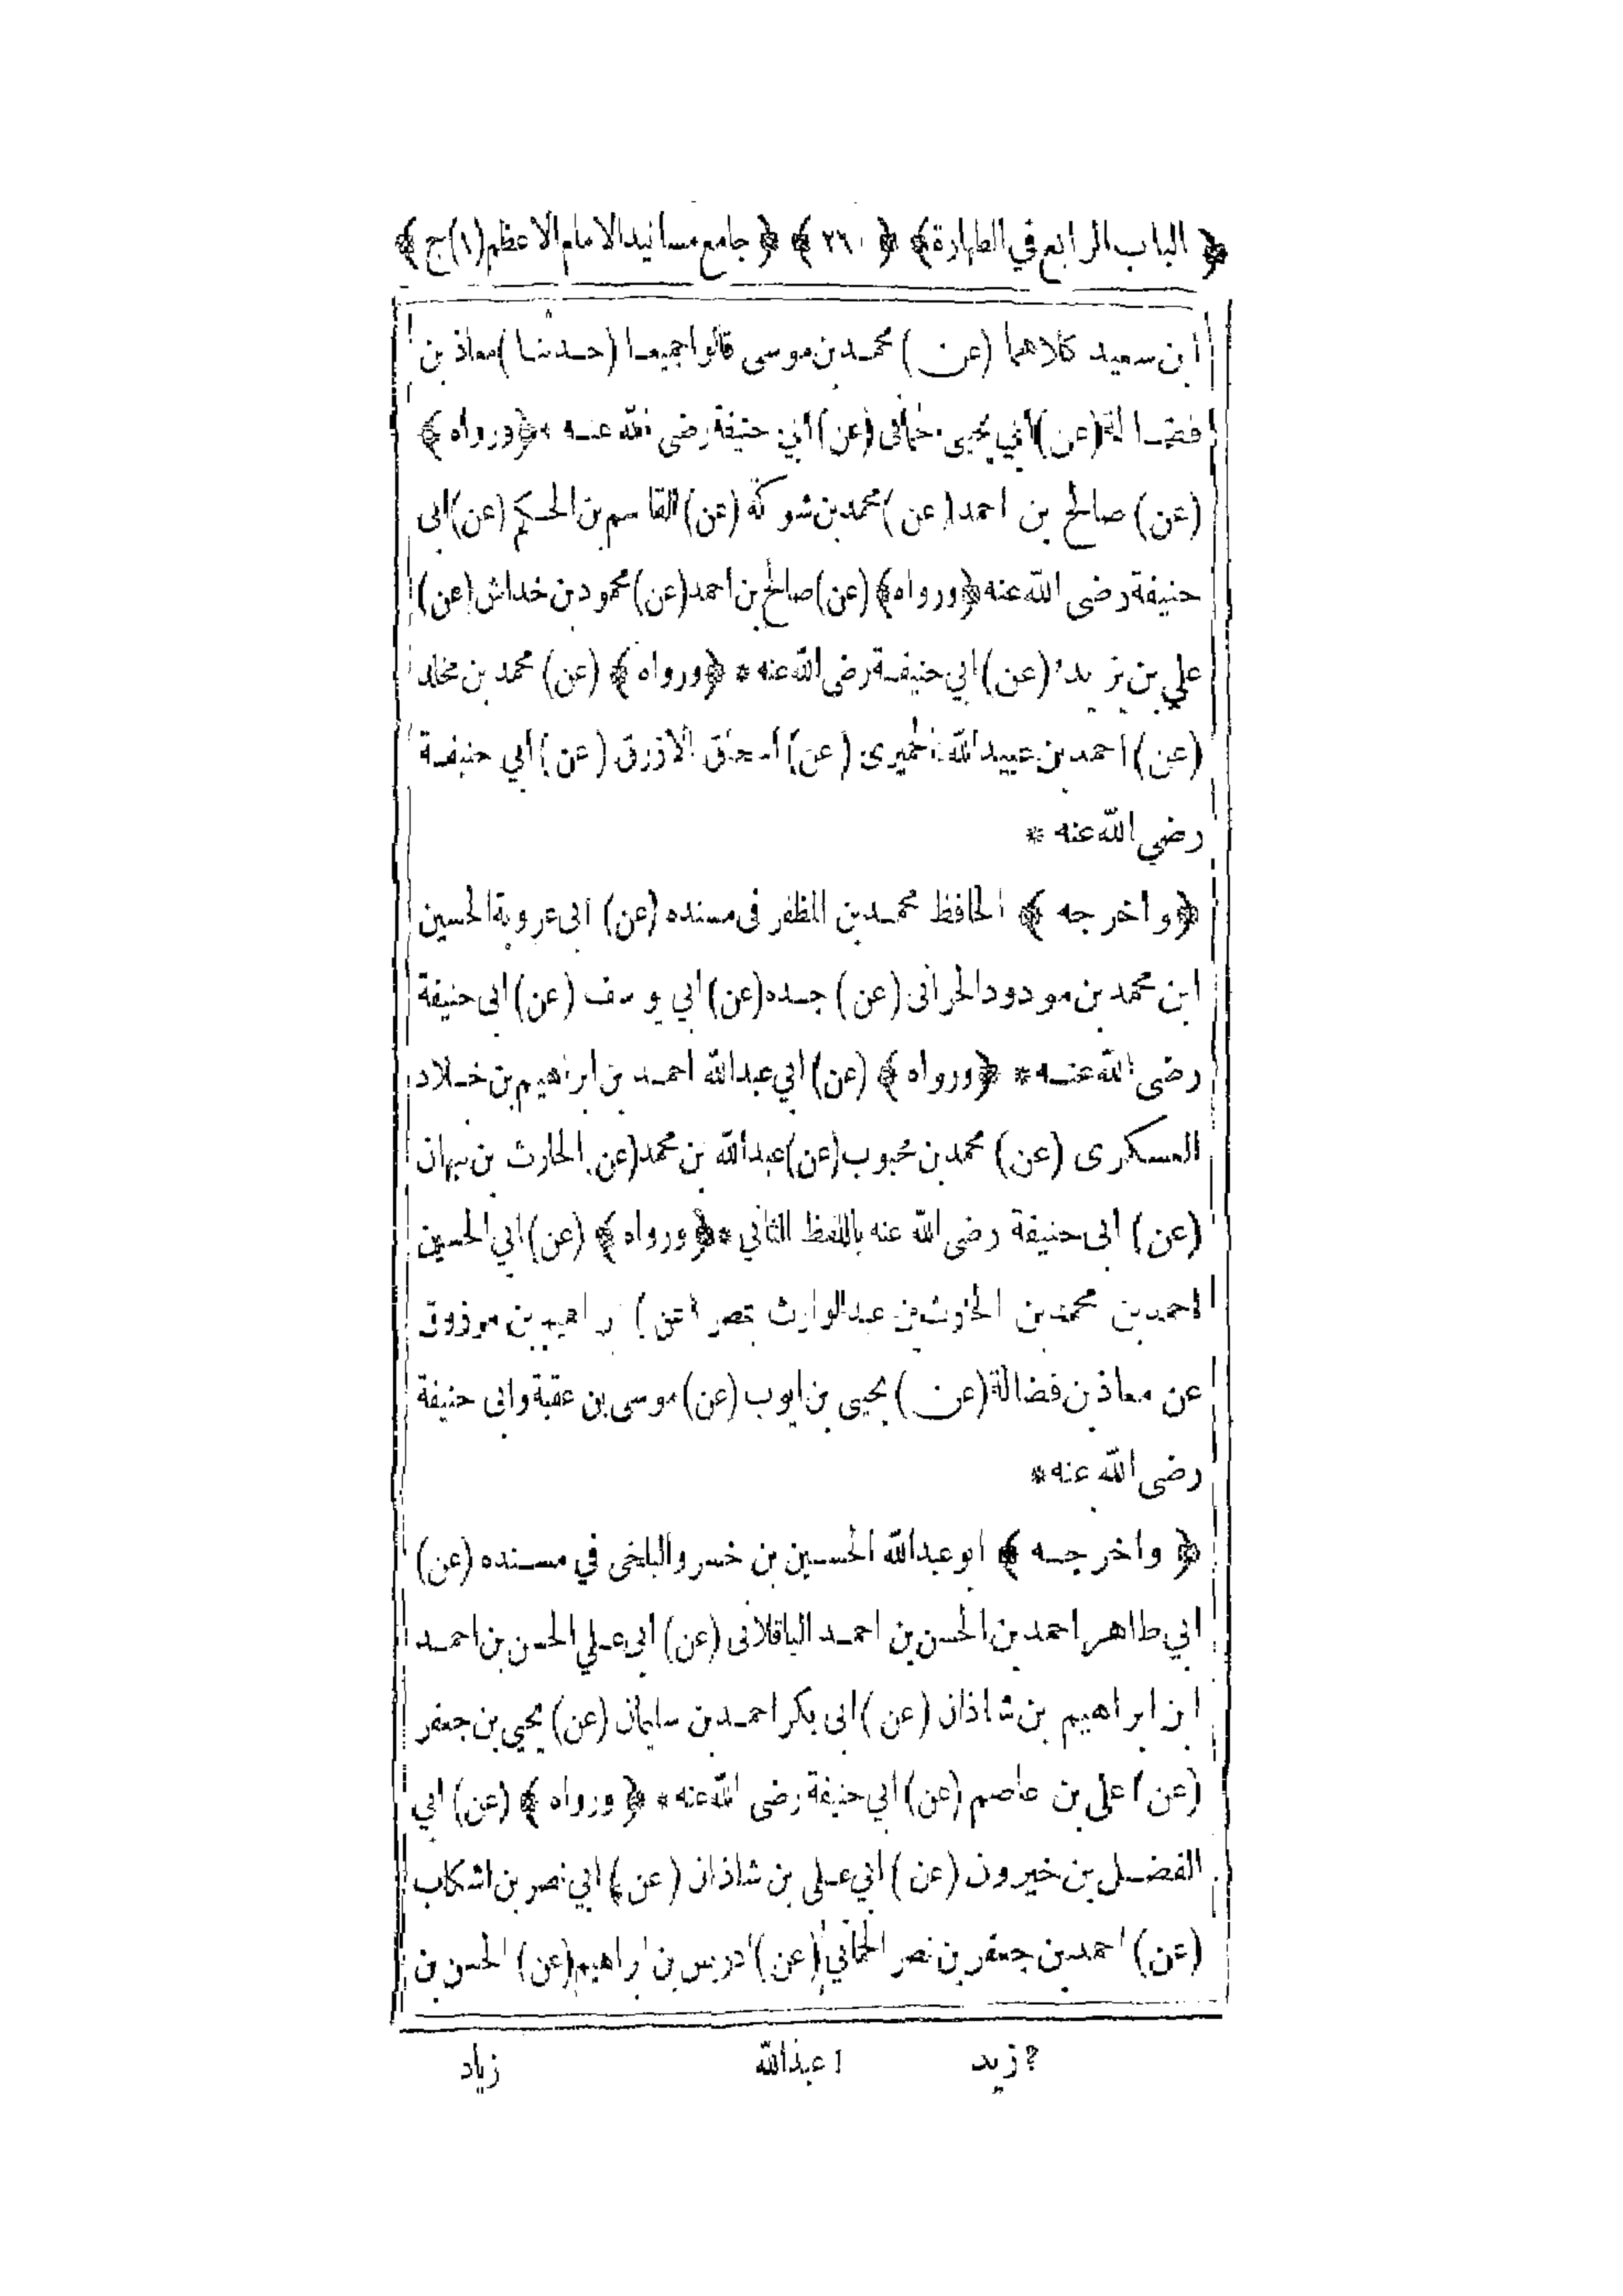 ﴿ الباب الرابع في الطهارة ﴾ ﴿ ٢٦٠ ﴾ ﴿ جامع مسانيد الامام الاعظم (١) ج ﴾
ابن سعيد كلاهما (عن) محمد بن موسى قالوا جميعا (حدثنا) معاذ بن
فضالة (عن) ابي يحيى حماني (عن) ابي حنيفة رضى الله عنه * ﴿ ورواه ﴾
(عن) صالح بن احمد (عن) محمد بن شوكة (عن) القاسم بن الحكم (عن) ابى
حنيفة رضى الله عنه ﴿ ورواه ﴾ (عن) صالح بن احمد (عن) محمود بن خداش (عن)
علي بن يزيد (عن) ابي حنيفة رضى الله عنه * ﴿ ورواه ﴾ (عن) محمد بن مخلد
(عن) احمد بن عبيد الله الحميرى (عن) اسحاق الازرق (عن) ابي حنيفة
رضي الله عنه *
﴿ واخرجه ﴾ الحافظ محمد بن المظفر فى مسنده (عن) ابى عروبة الحسين
ابن محمد بن مودود الحرانى (عن) جده (عن) ابي يوسف (عن) ابى حنيفة
رضى الله عنه * ﴿ ورواه ﴾ (عن) ابي عبد الله احمد بن ابراهيم بن خلاد
العسكرى (عن) محمد بن محبوب (عن) عبد الله بن محمد (عن) الحارث بن نبهان
(عن) ابى حنيفة رضى الله عنه باللفظ الثاني * ﴿ ورواه ﴾ (عن) ابي الحسين
احمد بن محمد بن الحارث بن عبد الوارث بمصر (عن) ابراهيم بن مرزوق
عن معاذ بن فضالة (عن) يحيى بن ايوب (عن) موسى بن عقبة وابى حنيفة
رضى الله عنه *
﴿ واخرجه ﴾ ابو عبد الله الحسين بن خسرو البلخى في مسنده (عن)
ابي طاهر احمد بن الحسن بن احمد الباقلانى (عن) ابى علي الحسن بن احمد
ابن ابراهيم بن شاذان (عن) ابى بكر احمد بن سليمان (عن) يحيى بن جعفر
(عن) على بن عاصم (عن) ابي حنيفة رضى الله عنه * ﴿ ورواه ﴾ (عن) ابي
الفضل بن خيرون (عن) ابي على بن شاذان (عن) ابي نصر بن اشكاب
(عن) احمد بن جعفر بن نصر الحماني (عن) ادريس بن ابراهيم (عن) الحسن بن
زيد ١ عبد الله زياد